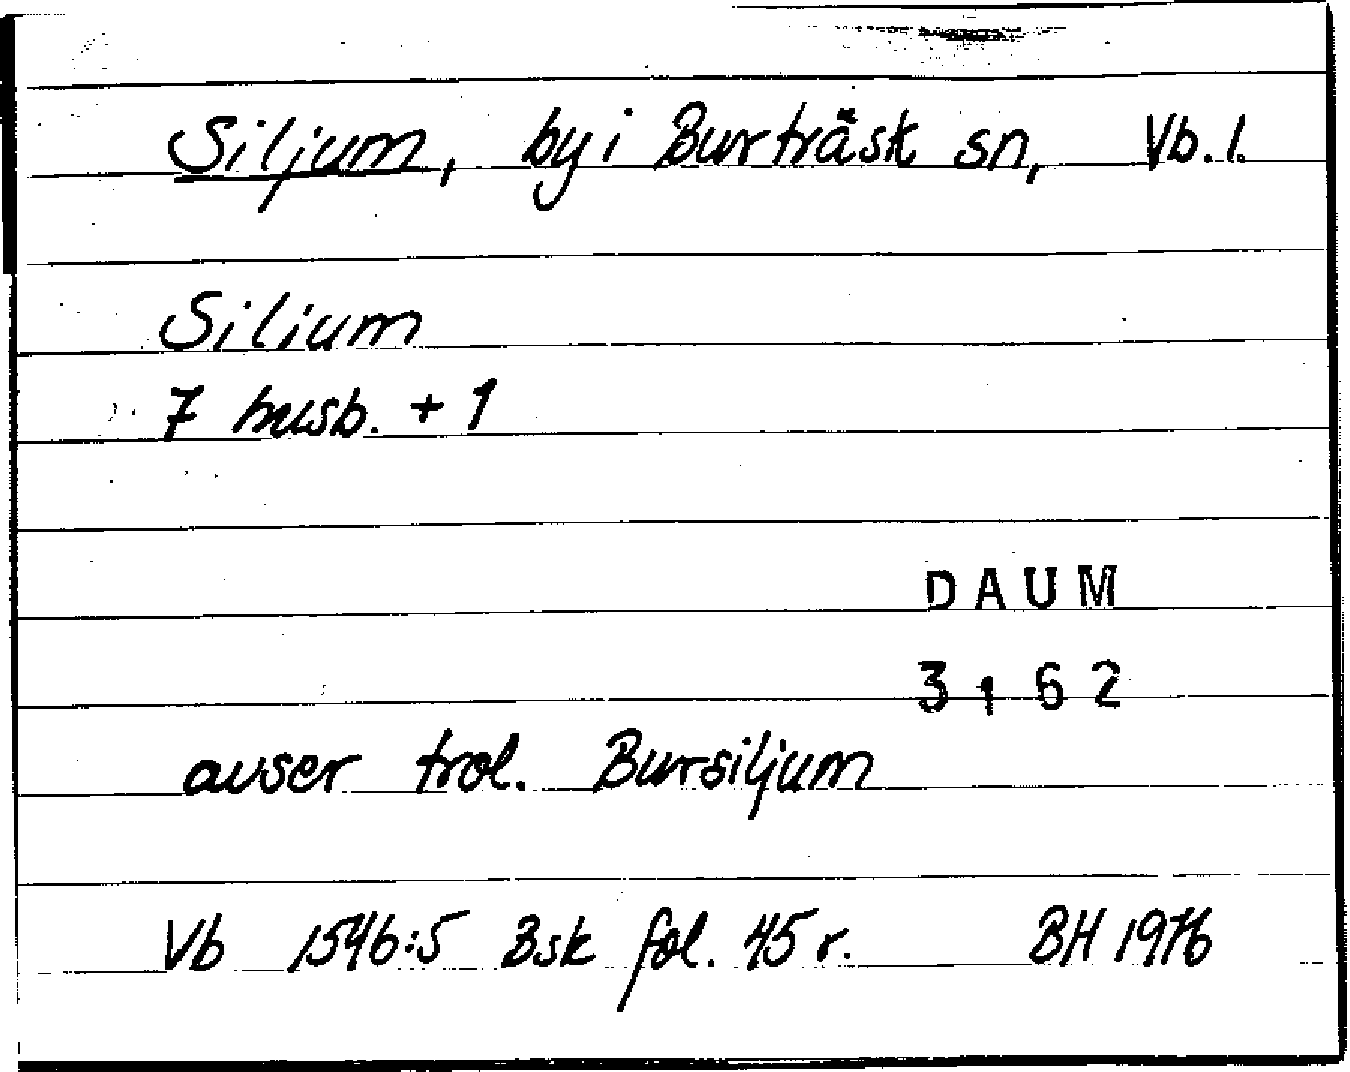 Siljum, by i Burträsk sn, Vb. l.
Silium
7 husb. + 1
DAUM
3162
avser trol. Bursiljum
Vb 1546:5 Bsk fol. 45 r. BH 1976